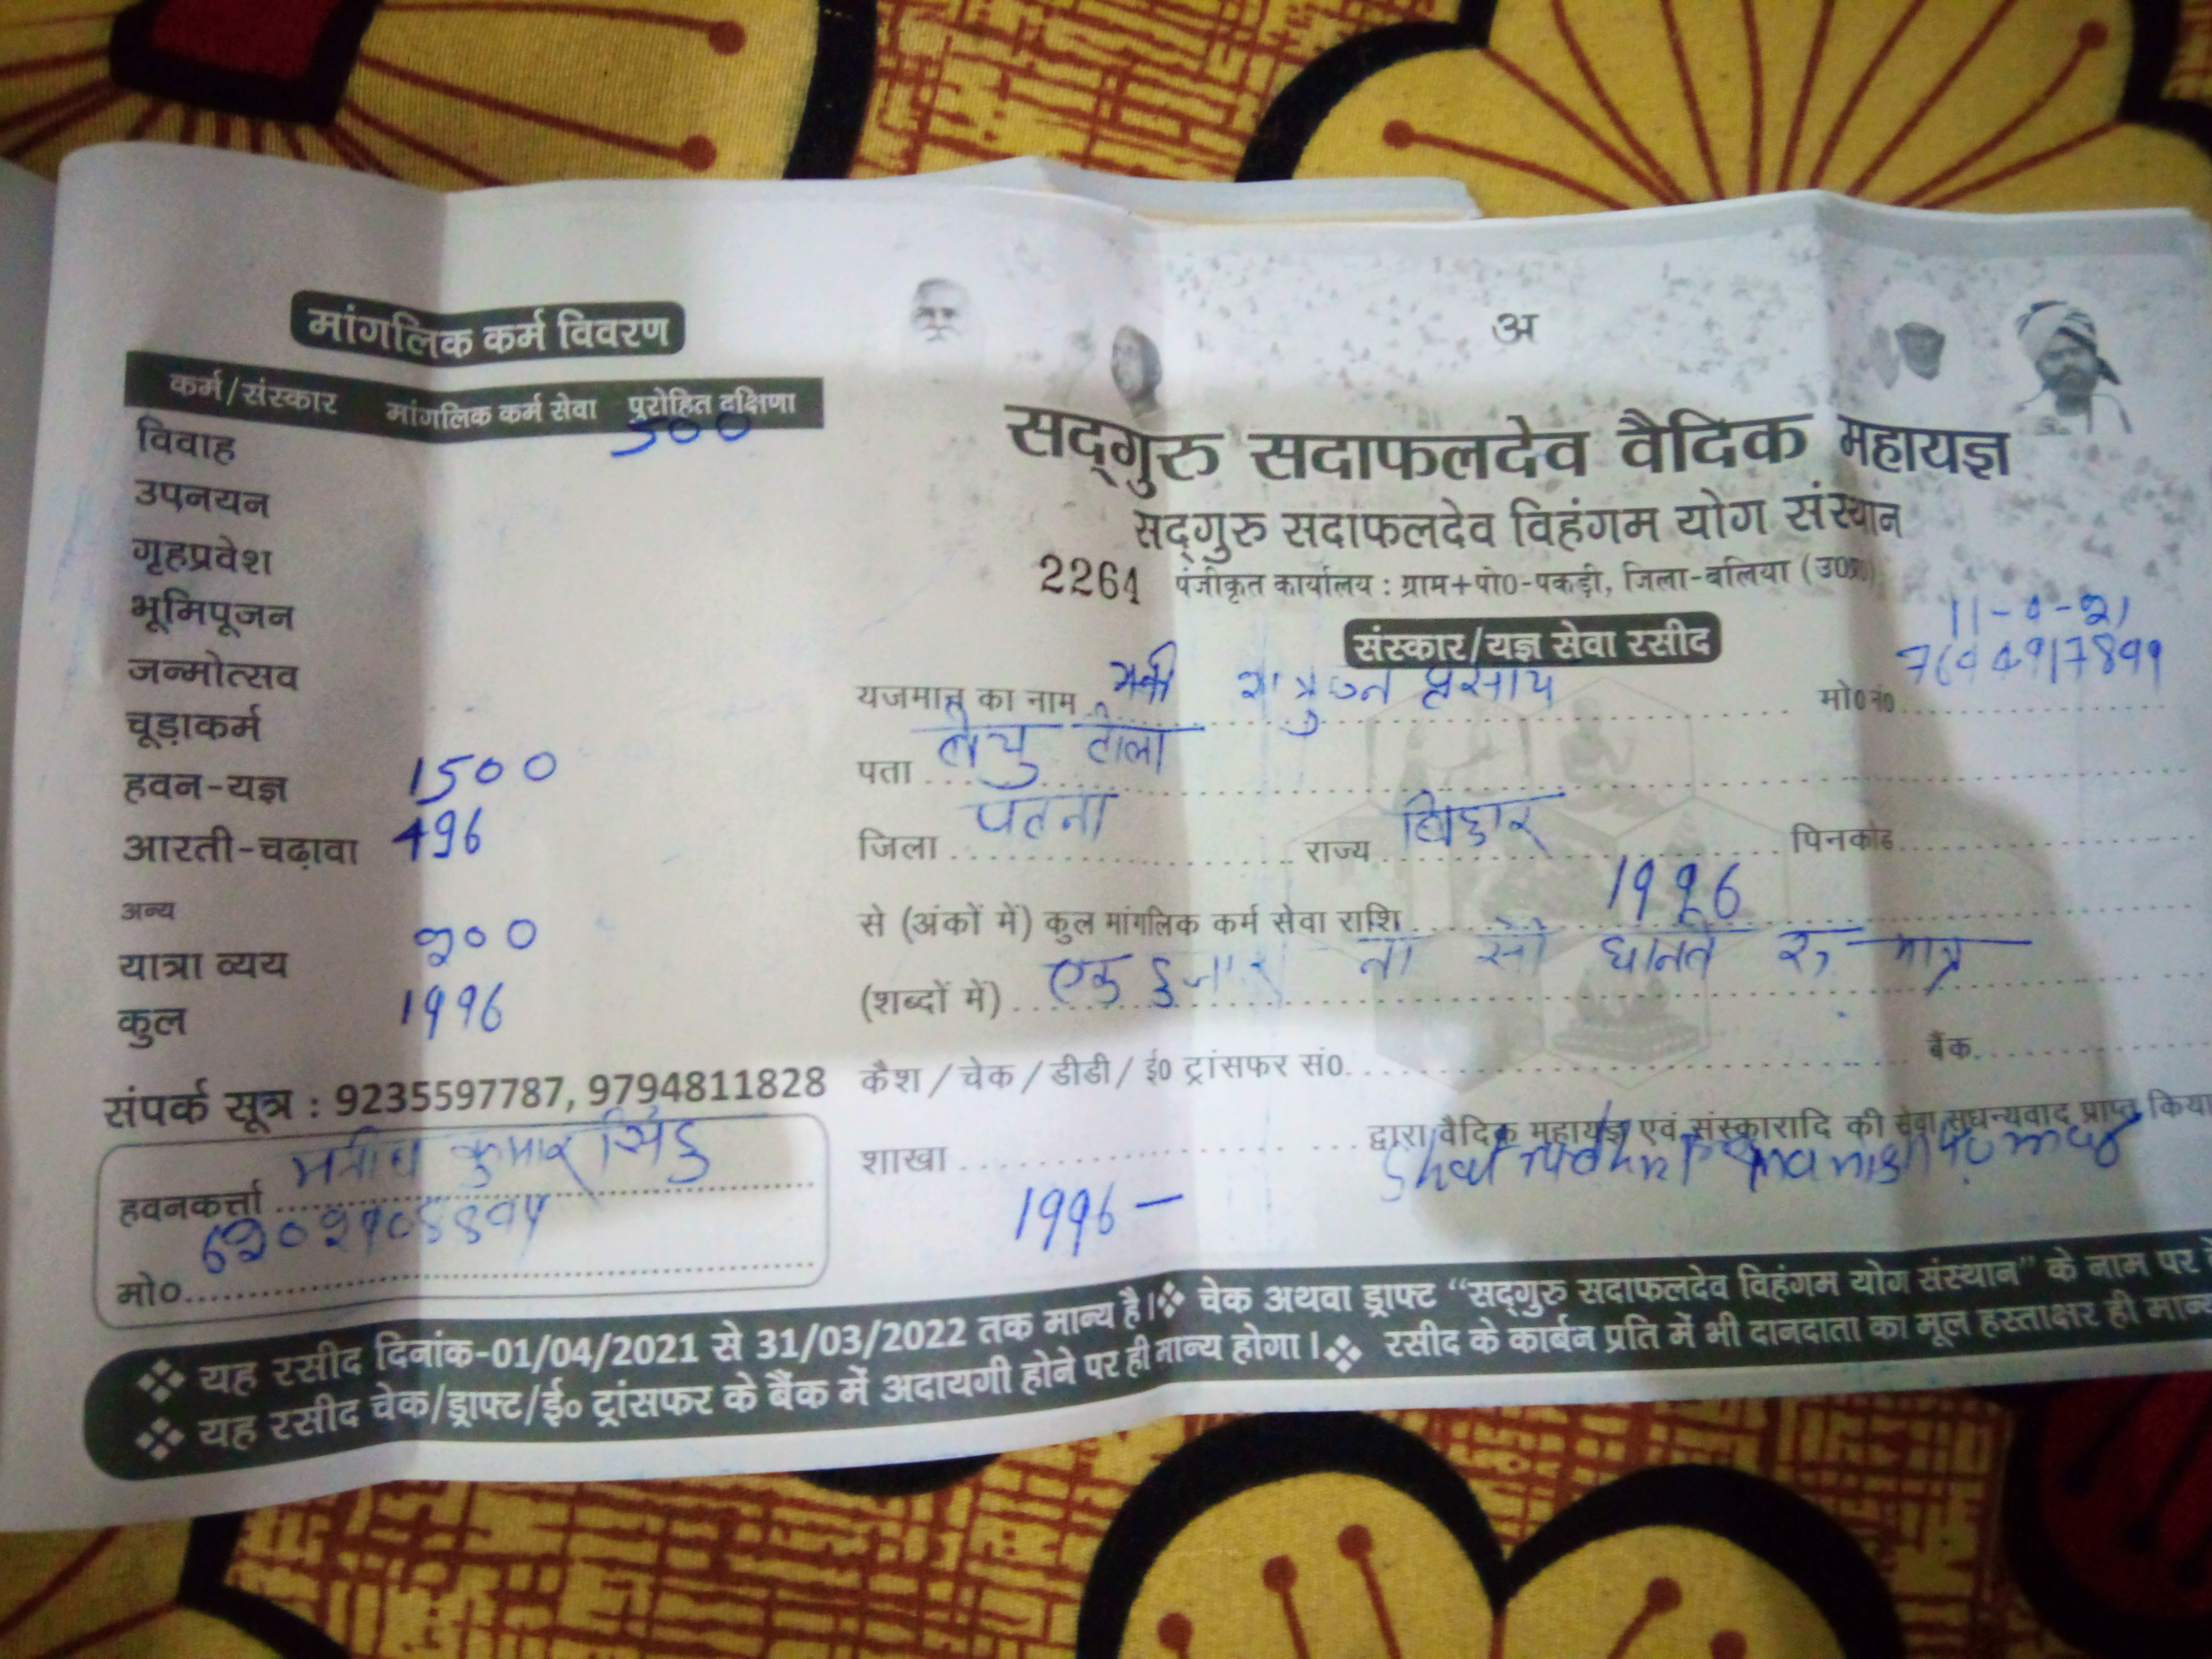 मांगलिक कर्म विवरण
कर्म/संस्कार मांगलिक कर्म सेवा पुरोहित दक्षिणा
500
विवाह
उपनयन
गृहप्रवेश
भूमिपूजन
जन्मोत्सव
चूड़ाकर्म
हवन-यज्ञ 1500
आरती-चढ़ावा 496
अन्य
यात्रा व्यय २००
कुल 1996
संपर्क सूत्र : 9235597787, 9794811828
कुमार सिंह
हवनकर्त्ता
मो०
अ
सद्गुरु सदाफलदेव वैदिक महायज्ञ
सद्गुरु सदाफलदेव विहंगम योग संस्थान
2264 पंजीकृत कार्यालय : ग्राम+पो०-पकड़ी, जिला-बलिया (उ०प्र०)
संस्कार/यज्ञ सेवा रसीद
यजमान का नाम मो० नं०
पता टोला
जिला पटना राज्य बिहार पिनकोड
से (अंकों में) कुल मांगलिक कर्म सेवा राशि 1996
(शब्दों में) एक हजार सौ रु मात्र
कैश / चेक / डीडी / ई० ट्रांसफर सं०. बैंक
शाखा द्वारा वैदिक महायज्ञ एवं संस्कारादि की सेवा सधन्यवाद प्राप्त किया
1996 –
❖ यह रसीद दिनांक-01/04/2021 से 31/03/2022 तक मान्य है। ❖ चेक अथवा ड्राफ्ट “सद्गुरु सदाफलदेव विहंगम योग संस्थान” के नाम पर
❖ यह रसीद चेक/ड्राफ्ट/ई० ट्रांसफर के बैंक में अदायगी होने पर ही मान्य होगा। ❖ रसीद के कार्बन प्रति में भी दानदाता का मूल हस्ताक्षर ही